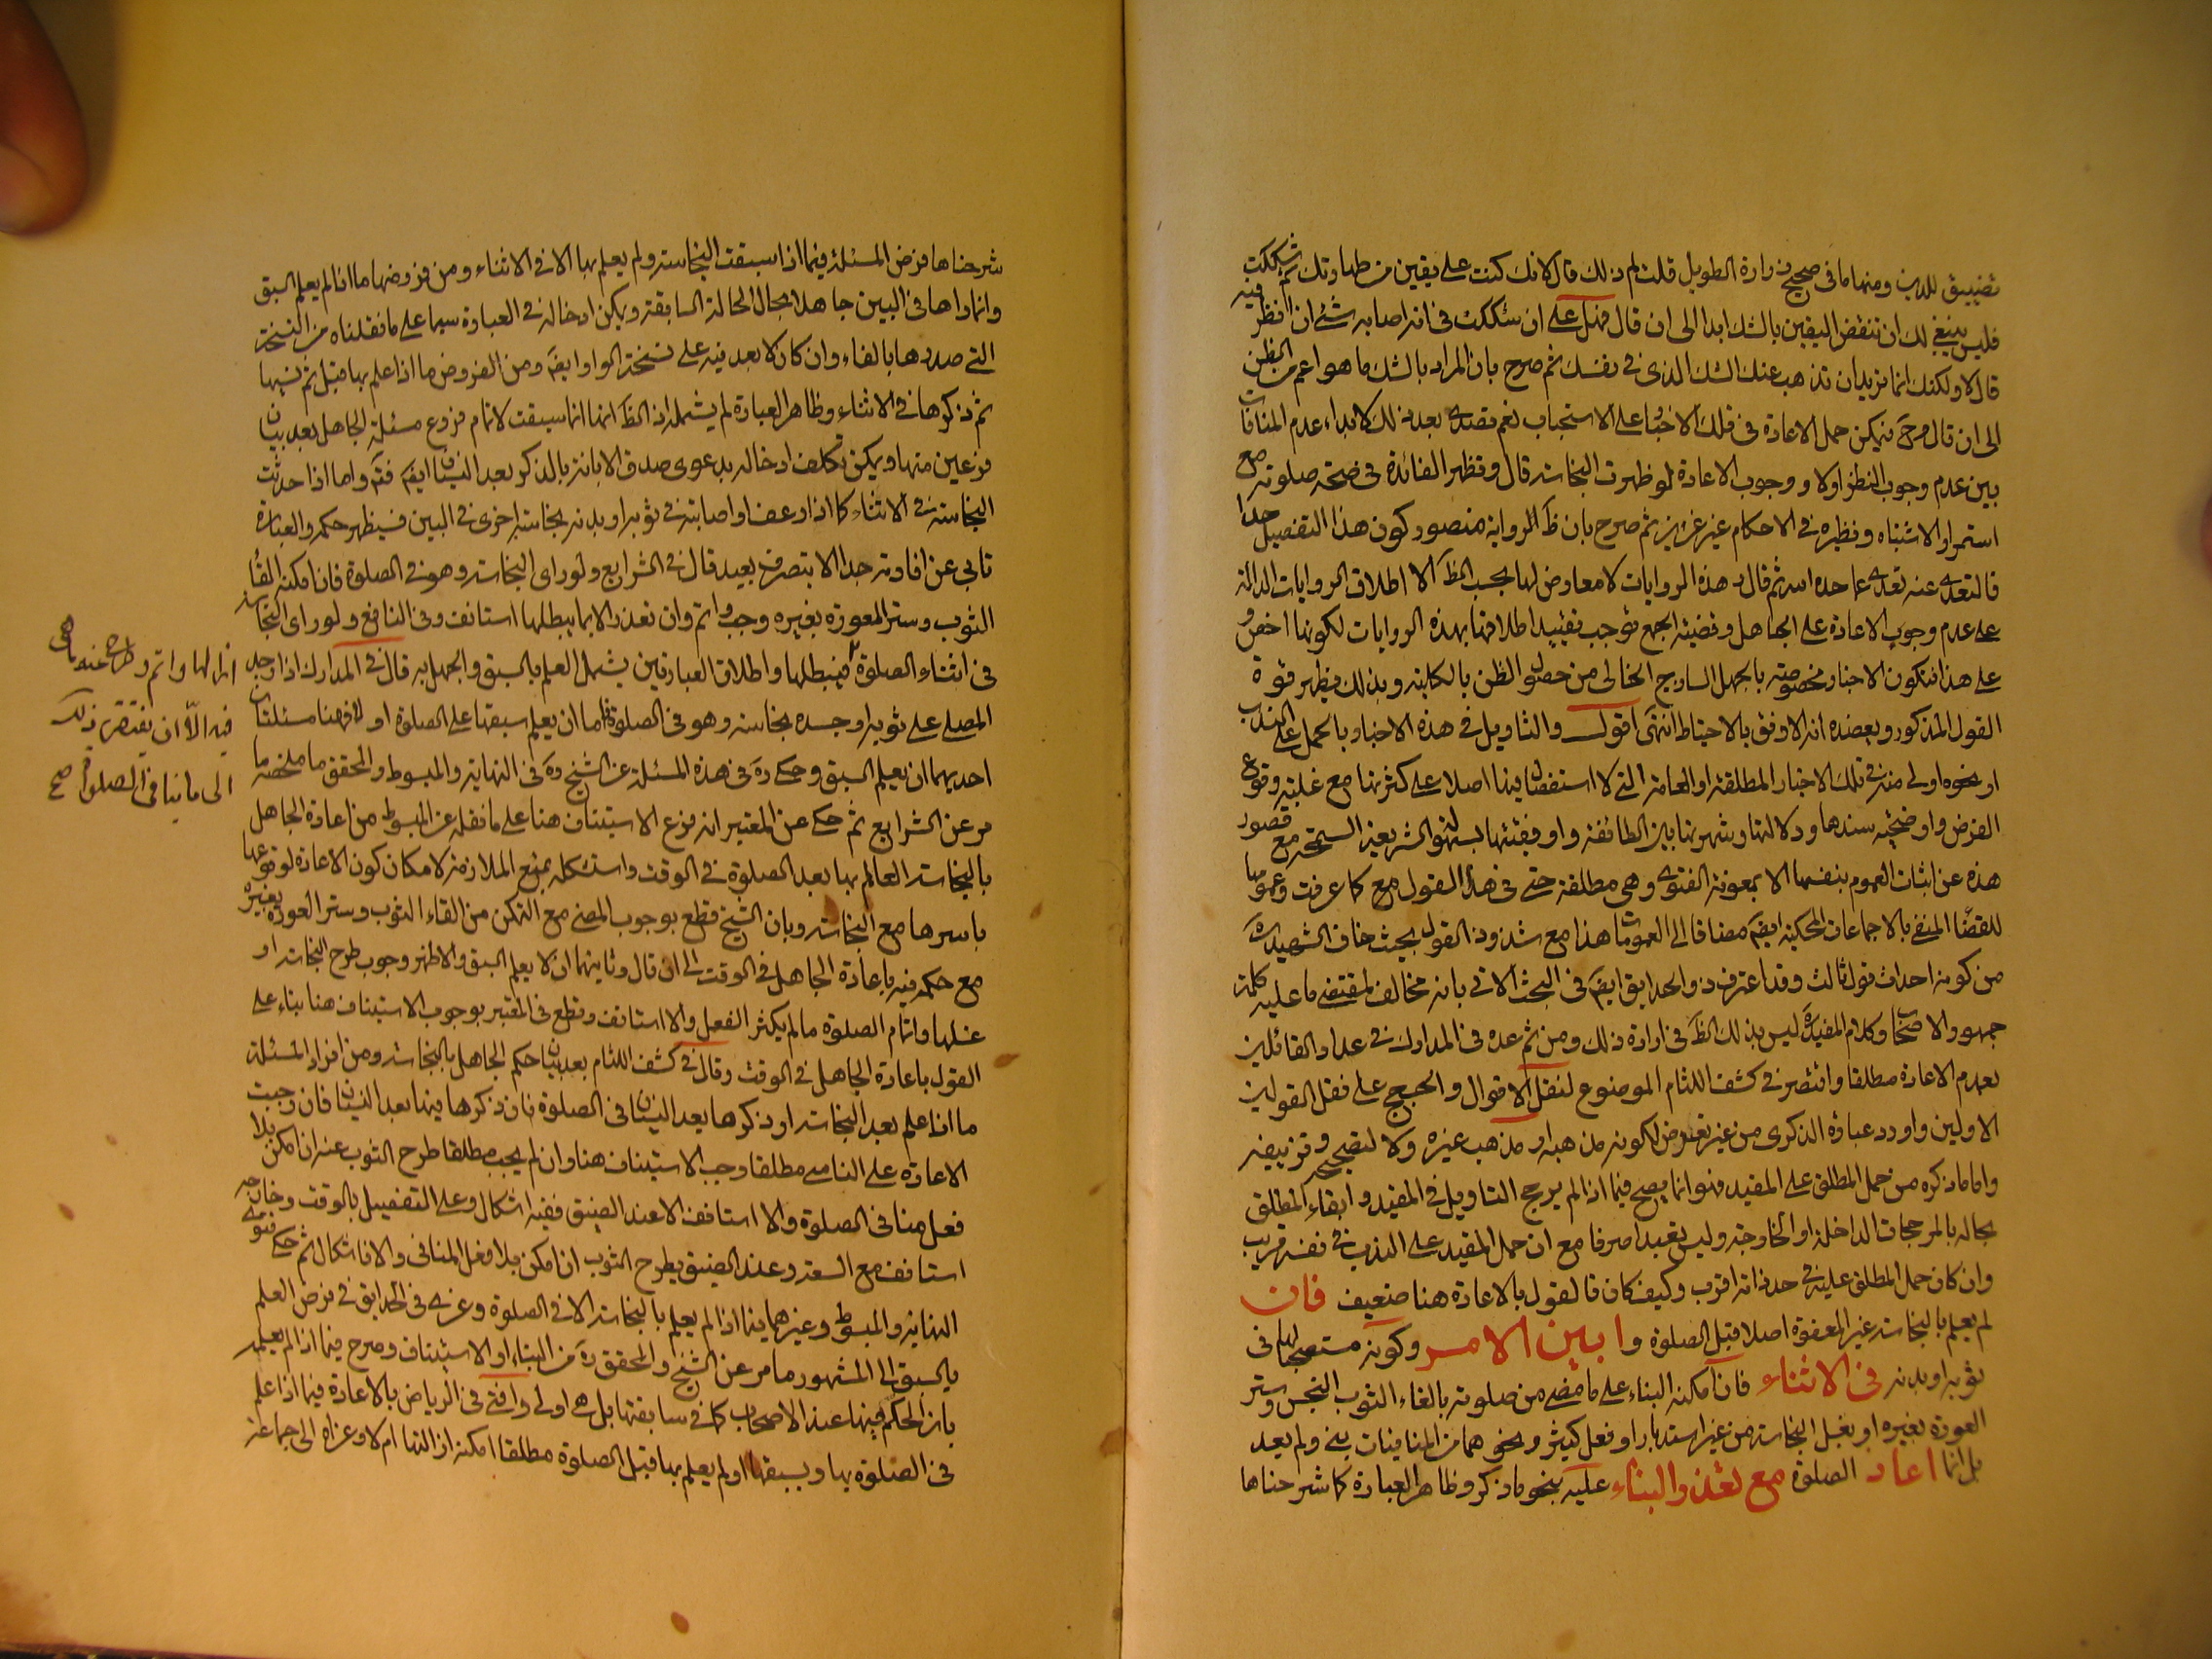 تضييق للدين ومنها ما فى صحيح زرارة الطويل قلت لم ذلك قال لانك كنت على يقين من طهارتك ثم شككت
فليس ينبغى لك ان تنقض اليقين بالشك ابدا الى ان قال فهل على ان شككت فى انه اصابه شئ ان انظر فيه
قال لا ولكنك انما تريد ان تذهب عنك الشك الذى فى نفسك ثم صرح بان المراد بالشك ما هو اعم من الظن
الى ان قال فيمكن حمل الاعادة فى تلك الاخبار على الاستحباب بعد ذلك عدم المنافات
بين عدم وجوب النظر اولا ووجوب الاعادة لو ظهرت النجاسة قال وتظهر الفائدة فى صحة صلوته مع
استمرار الاشتباه ونظيره فى الاحكام غير عزيز ثم صرح بان ظ الرواية منصور كون هذا التفصيل جدا
فالتعدى عنه تعدى عما حده الله ثم قال وهذه الروايات لا معارض لها بحسب الظ الا اطلاق الروايات الدالة
على عدم وجوب الاعادة على الجاهل وقضية الجمع توجب تقييد اطلاقها بهذه الروايات لكونها اخص و
على هذا فتكون الاخبار مخصوصة بالجهل الساذج الخالى من حصول الظن بالكلية وبذلك يظهر قوة
القول المذكور ويعضده انه الاوفق بالاحتياط انتهى اقول والتاويل فى هذه الاخبار بالحمل على الندب
او نحوه اولى منه فى تلك الاخبار المطلقة او العامة التى لا استفصال فيها اصلا على كثرتها مع غلبة وقوع
الفرض واوضحية سندها ودلالتها وشهرتها بين الطائفة واوفقيتها بسهولة الشريعة السمحة مع قصور
هذه عن اثبات العموم بنفسها الا بمعونة الفتوى وهى مطلقة حتى فى هذا القول مع كما عرفت وعمومها
للقضاء المنفى بالاجماعات المحكية ايضا مضافا الى العمومات هذا مع شذوذ القول بحيث خاف الشهيد ره
من كونه احداث قول ثالث وقد اعترف ذو الحدايق ايضا فى البحث الاتى بانه مخالف لمقتضى ما عليه كلمة
جمهور الاصحاب وكلام المفيد ره ليس بذلك الظ فى ارادة ذلك ومن ثم عده فى المدارك فى عداد القائلين
بعدم الاعادة مطلقا واقتصر فى كشف اللثام الموضوع لنقل الاقوال والحجج على نقل القولين
الاولين واورد عبارة الذكرى من غير تعرض لكونه مذهبه او مذهب غيره ولا لتصحيحه وتزييفه
واما ما ذكره من حمل المطلق على المقيد فهو انما يصح فيما اذا لم يرجح التاويل فى المقيد وابقاء المطلق
بحاله بالمرجحات الداخلة او الخارجة وليس تعبدا صرفا مع ان حمل المقيد على الندب فى نفسه قريب
وان كان حمل المطلق عليه فى حد ذاته اقرب وكيف كان فالقول بالاعادة هنا ضعيف فان
لم يعلم بالنجاسة غير المعفوة اصلا قبل الصلوة وابين الامر وكونه مستصحبا لها فى
ثوبه او بدنه فى الاثناء فان امكنه البناء على ما مضى من صلوته بالقاء الثوب النجس وستر
العورة بغيره او بغسل النجاسة من غير استدبار او فعل كثير ونحوهما من المنافيات بنى ولم يعد
بل انما اعاد الصلوة مع تعذر البناء عليه بنحو ما ذكر وظاهر العبارة كما شرحناها
شرحناها فرض المسئلة فيما اذا سبقت النجاسة ولم يعلم بها الا فى الاثناء ومن فروضها ما اذا لم يعلم السبق
وانما راها فى البين جاهلا بحال الحالة السابقة ويمكن ادخاله فى العبارة سيما على ما نقلناه من النسخة
التى صدرها بالفاء وان كان لا بعد فيه على نسخة الواو ايضا ومن الفروض ما اذا علم بها قبل ثم نسيها
ثم ذكرها فى الاثناء وظاهر العبارة لم يشمله اذ الظ انها انما سبقت لاتمام فروع مسئلة الجاهل بعد بيان
فرعين منها ويمكن تكلف ادخاله بدعوى صدق الابانة بالذكر بعد النسيان ايضا فتم واما اذا حدثت
النجاسة فى الاثناء كما اذا رعف او اصابته فى ثوبه او بدنه نجاسة اخرى فى البين فسيظهر حكمه والعبارة
تابى عن افادته جدا الا بتصرف بعيد قال فى الشرايع ولو راى النجاسة وهو فى الصلوة فان امكنه القاء
الثوب وستر العورة بغيره وجب واتم وان تعذر الا بما يبطلها استانف وفى النافع ولو راى النجاسة
فى اثناء الصلوة فيبطلها واطلاق العبارتين يشمل العلم بالسبق والجهل به قال فى المدارك اذا وجد
المصلى على ثوبه او جسده نجاسة وهو فى الصلوة فاما ان يعلم سبقها على الصلوة او لا فهنا مسئلتان
احديهما ان يعلم السبق وحكى ره فى هذه المسئلة عن الشيخ ره فى النهاية والمبسوط والمحقق ما ملخصه ما
مر عن الشرايع ثم حكى عن المعتبر انه فرع الاستيناف هنا على ما نقله عن المبسوط من اعادة الجاهل
بالنجاسة العالم بها بعد الصلوة فى الوقت واستشكله بمنع الملازمة لامكان كون الاعادة لوقوعها
باسرها مع النجاسة وبان الشيخ قطع بوجوب المضى مع التمكن من القاء الثوب وستر العورة بغيره
مع حكمه فيه باعادة الجاهل فى الوقت الى ان قال وثانيهما ان لا يعلم السبق والاظهر وجوب طرح النجاسة او
غسلها واتمام الصلوة ما لم يكثر الفعل والا استانف وقطع فى المعتبر بوجوب الاستيناف هنا بناء على
القول باعادة الجاهل فى الوقت وقال فى كشف اللثام بعد بيان حكم الجاهل بالنجاسة ومن افراد المسئلة
ما اذا علم بعد النجاسة او ذكرها بعد النسيان فى الصلوة فان ذكرها فيها بعد النسيان فان وجبت
الاعادة على الناسى مطلقا وجب الاستيناف هنا وان لم يجب مطلقا طرح الثوب عنه ان امكن بلا
فعل مناف فى الصلوة والا استانف الا عند الضيق ففيه اشكال وعلى التفصيل بالوقت وخارجه
استانف مع السعة وعند الضيق يطرح الثوب ان امكن بلا فعل المنافى والا فاشكال ثم حكى فتوى
النهاية والمبسوط وغيرهما فيما اذا لم يعلم بالنجاسة الا فى الصلوة وعزى فى الحدايق فى فرض العلم
بالسبق الى المشهور ما مر عن الشيخ والمحقق ره من البناء او الاستيناف وصرح فيما اذا لم يعلمه
بان الحكم فيها عند الاصحاب كما فى سابقتها بل هى اولى وافتى فى الرياض بالاعادة فيما اذا علم
فى الصلوة بها وبسبقها او لم يعلم بها قبل الصلوة مطلقا امكنه ازالتها ام لا وعزاه الى جماعة
ازالها واتم وطرح عنه
فيه الا ان يفتقر ذلك
الى ما ينافى الصلوة صح